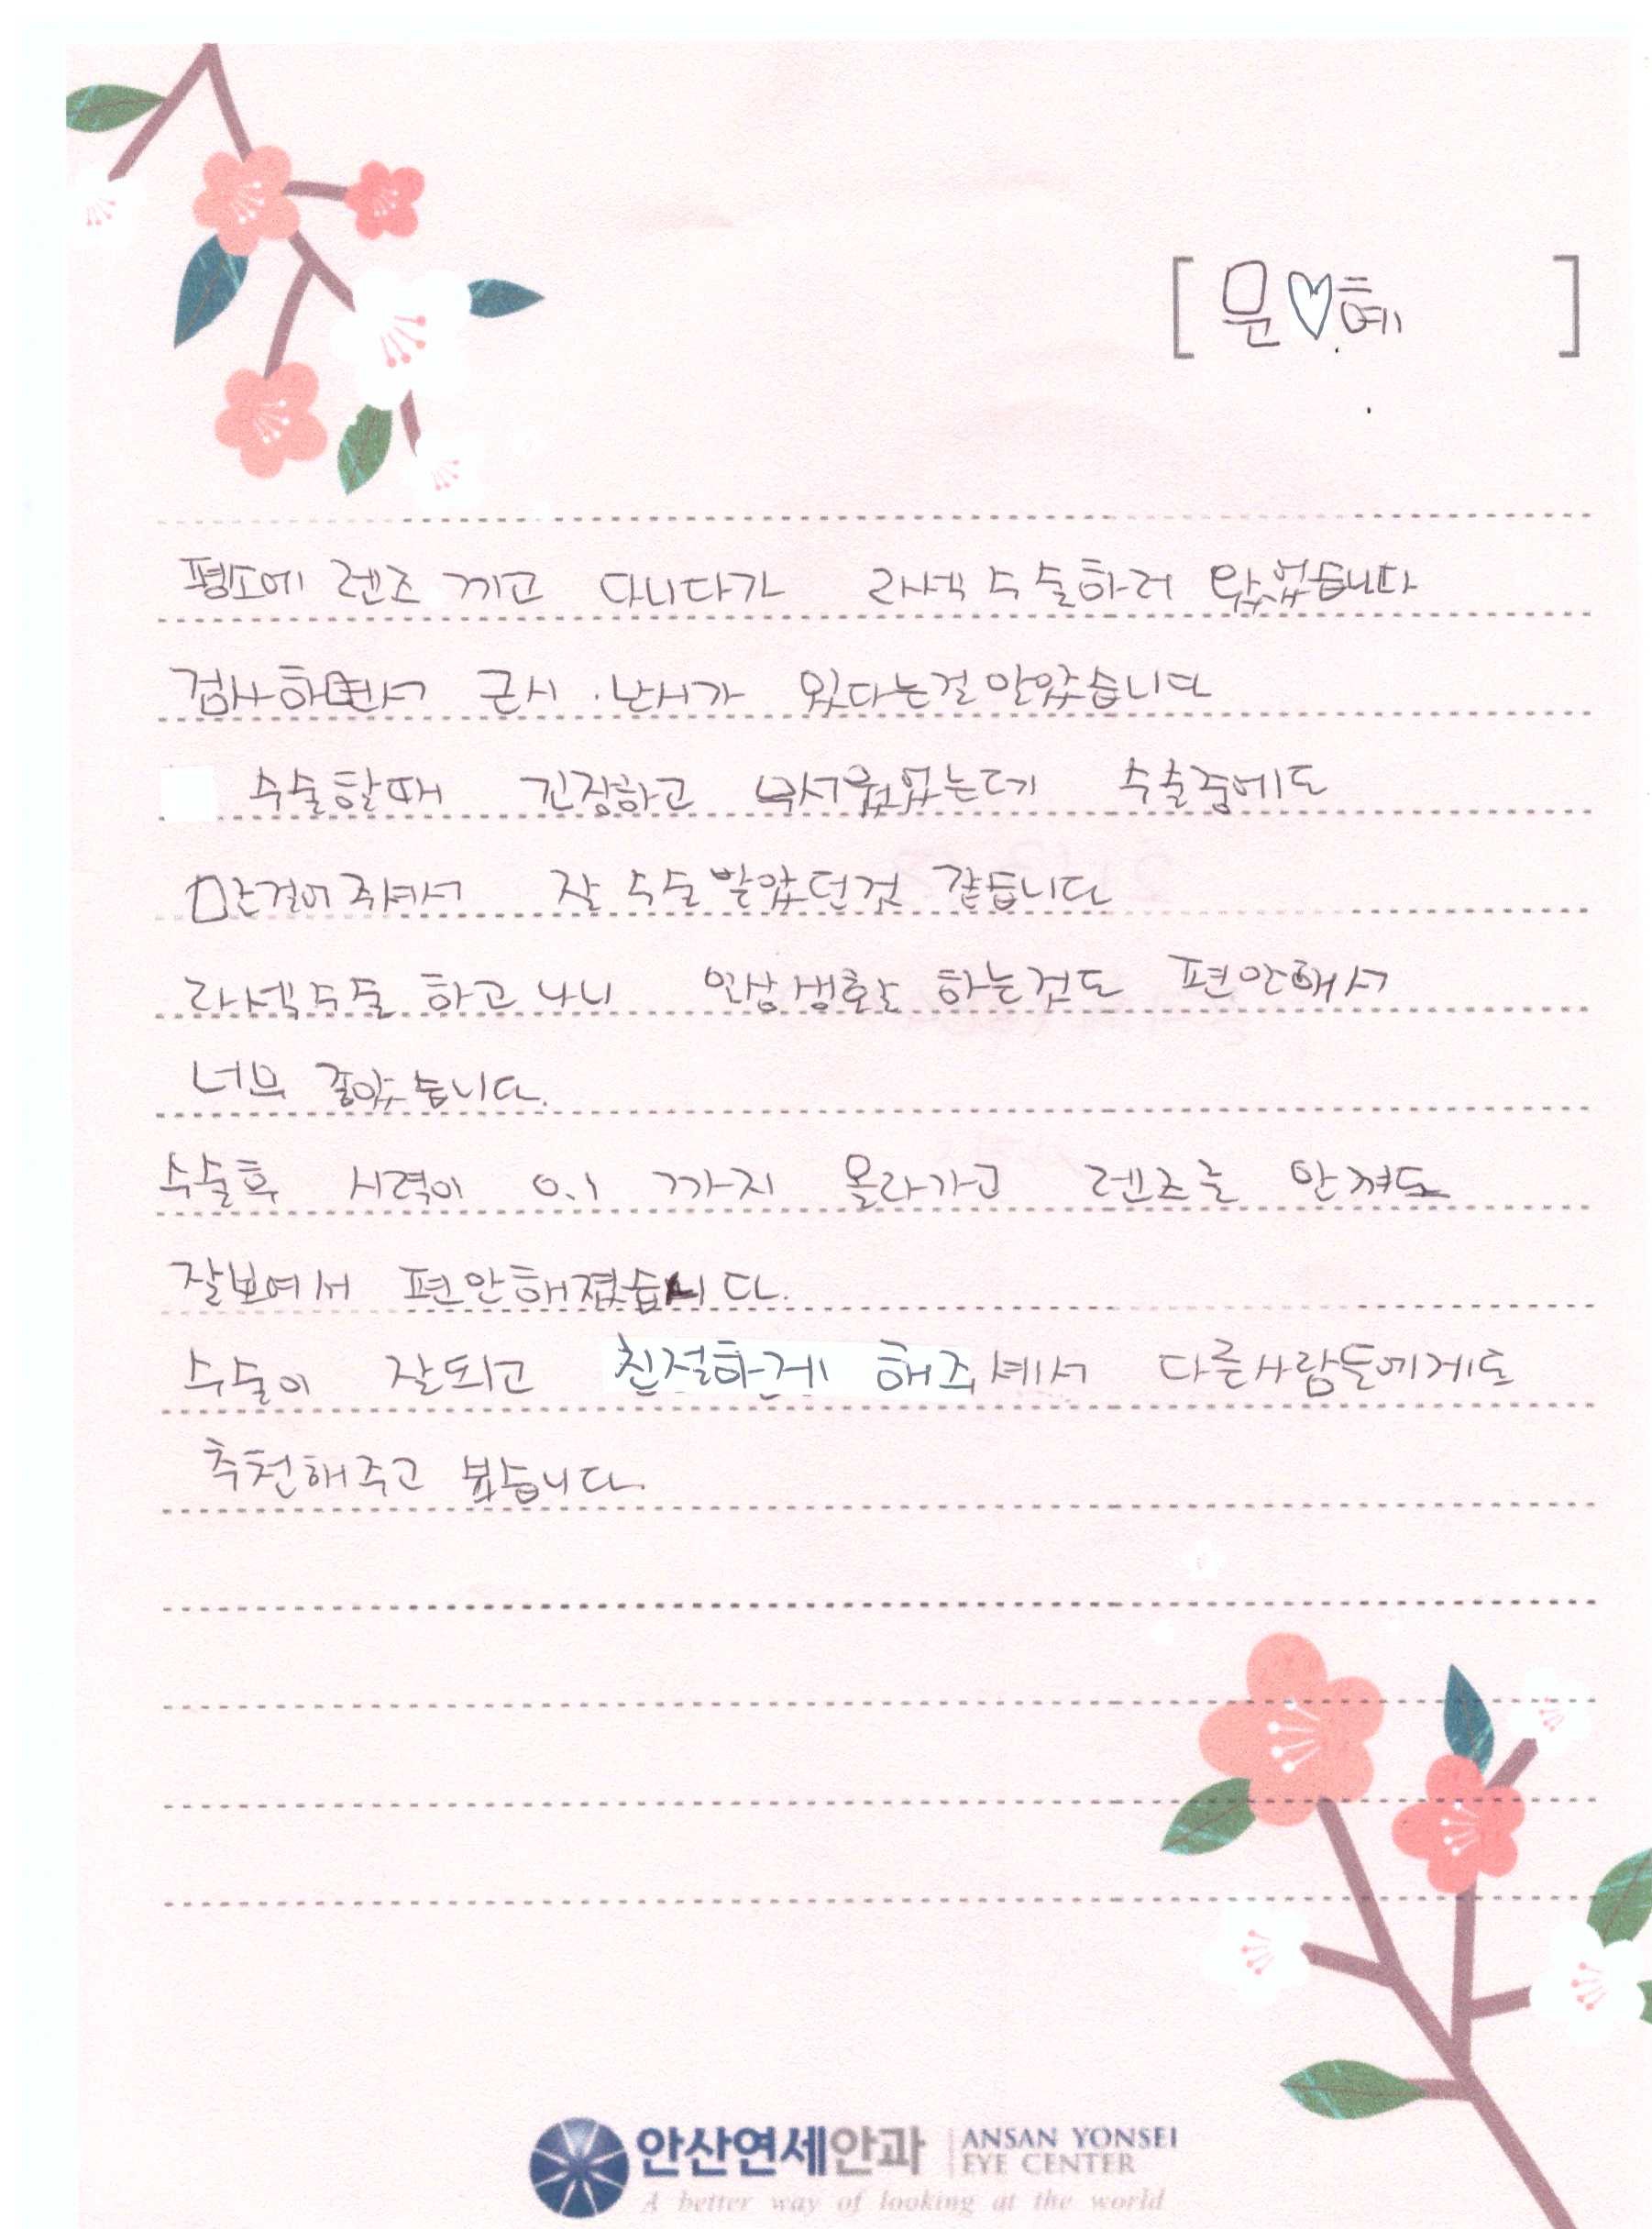 [ 문♡혜 ]
평소에 렌즈 끼고 다니다가 라섹수술하러 왔었습니다
검사하면서 근시.난시가 있다는걸 알았습니다
수술할때 긴장하고 무서웠었는데 수술중에도
말걸어주셔서 잘 수술 받았던것 같습니다
라섹수술 하고나니 일상생활 하는것도 편안해서
너무 좋았습니다.
수술후 시력이 0.1 까지 올라가고 렌즈를 안껴도
잘보여서 편안해졌습니다.
수술이 잘되고 친절하게 해주셰서 다른사람들에게도
추천해주고 싶습니다.
안산연세안과 ANSAN YONSEI
EYE CENTER
A better way of looking at the world